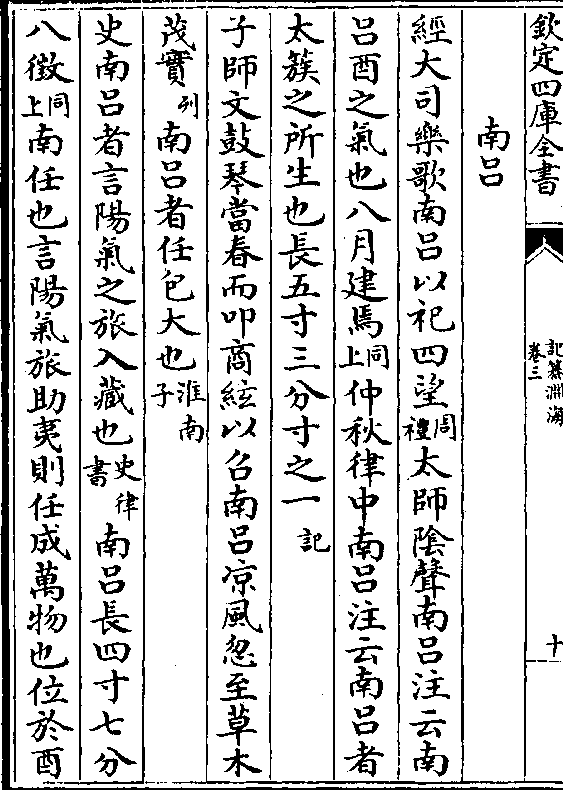 欽定四庫全書
記纂淵海
卷三
十
南呂
經大司樂歌南呂以祀四望周禮太師陰聲南呂注云南
呂酉之氣也八月建焉同上仲秋律中南呂注云南呂者
太簇之所生也長五寸三分寸之一記
子師文鼓琴當春而叩商絃以召南呂凉風忽至草木
茂實列南呂者任包大也淮南子
史南呂者言陽氣之旅入藏也史律書南呂長四寸七分
八徵同上南任也言陽氣旅助夷則任成萬物也位於酉